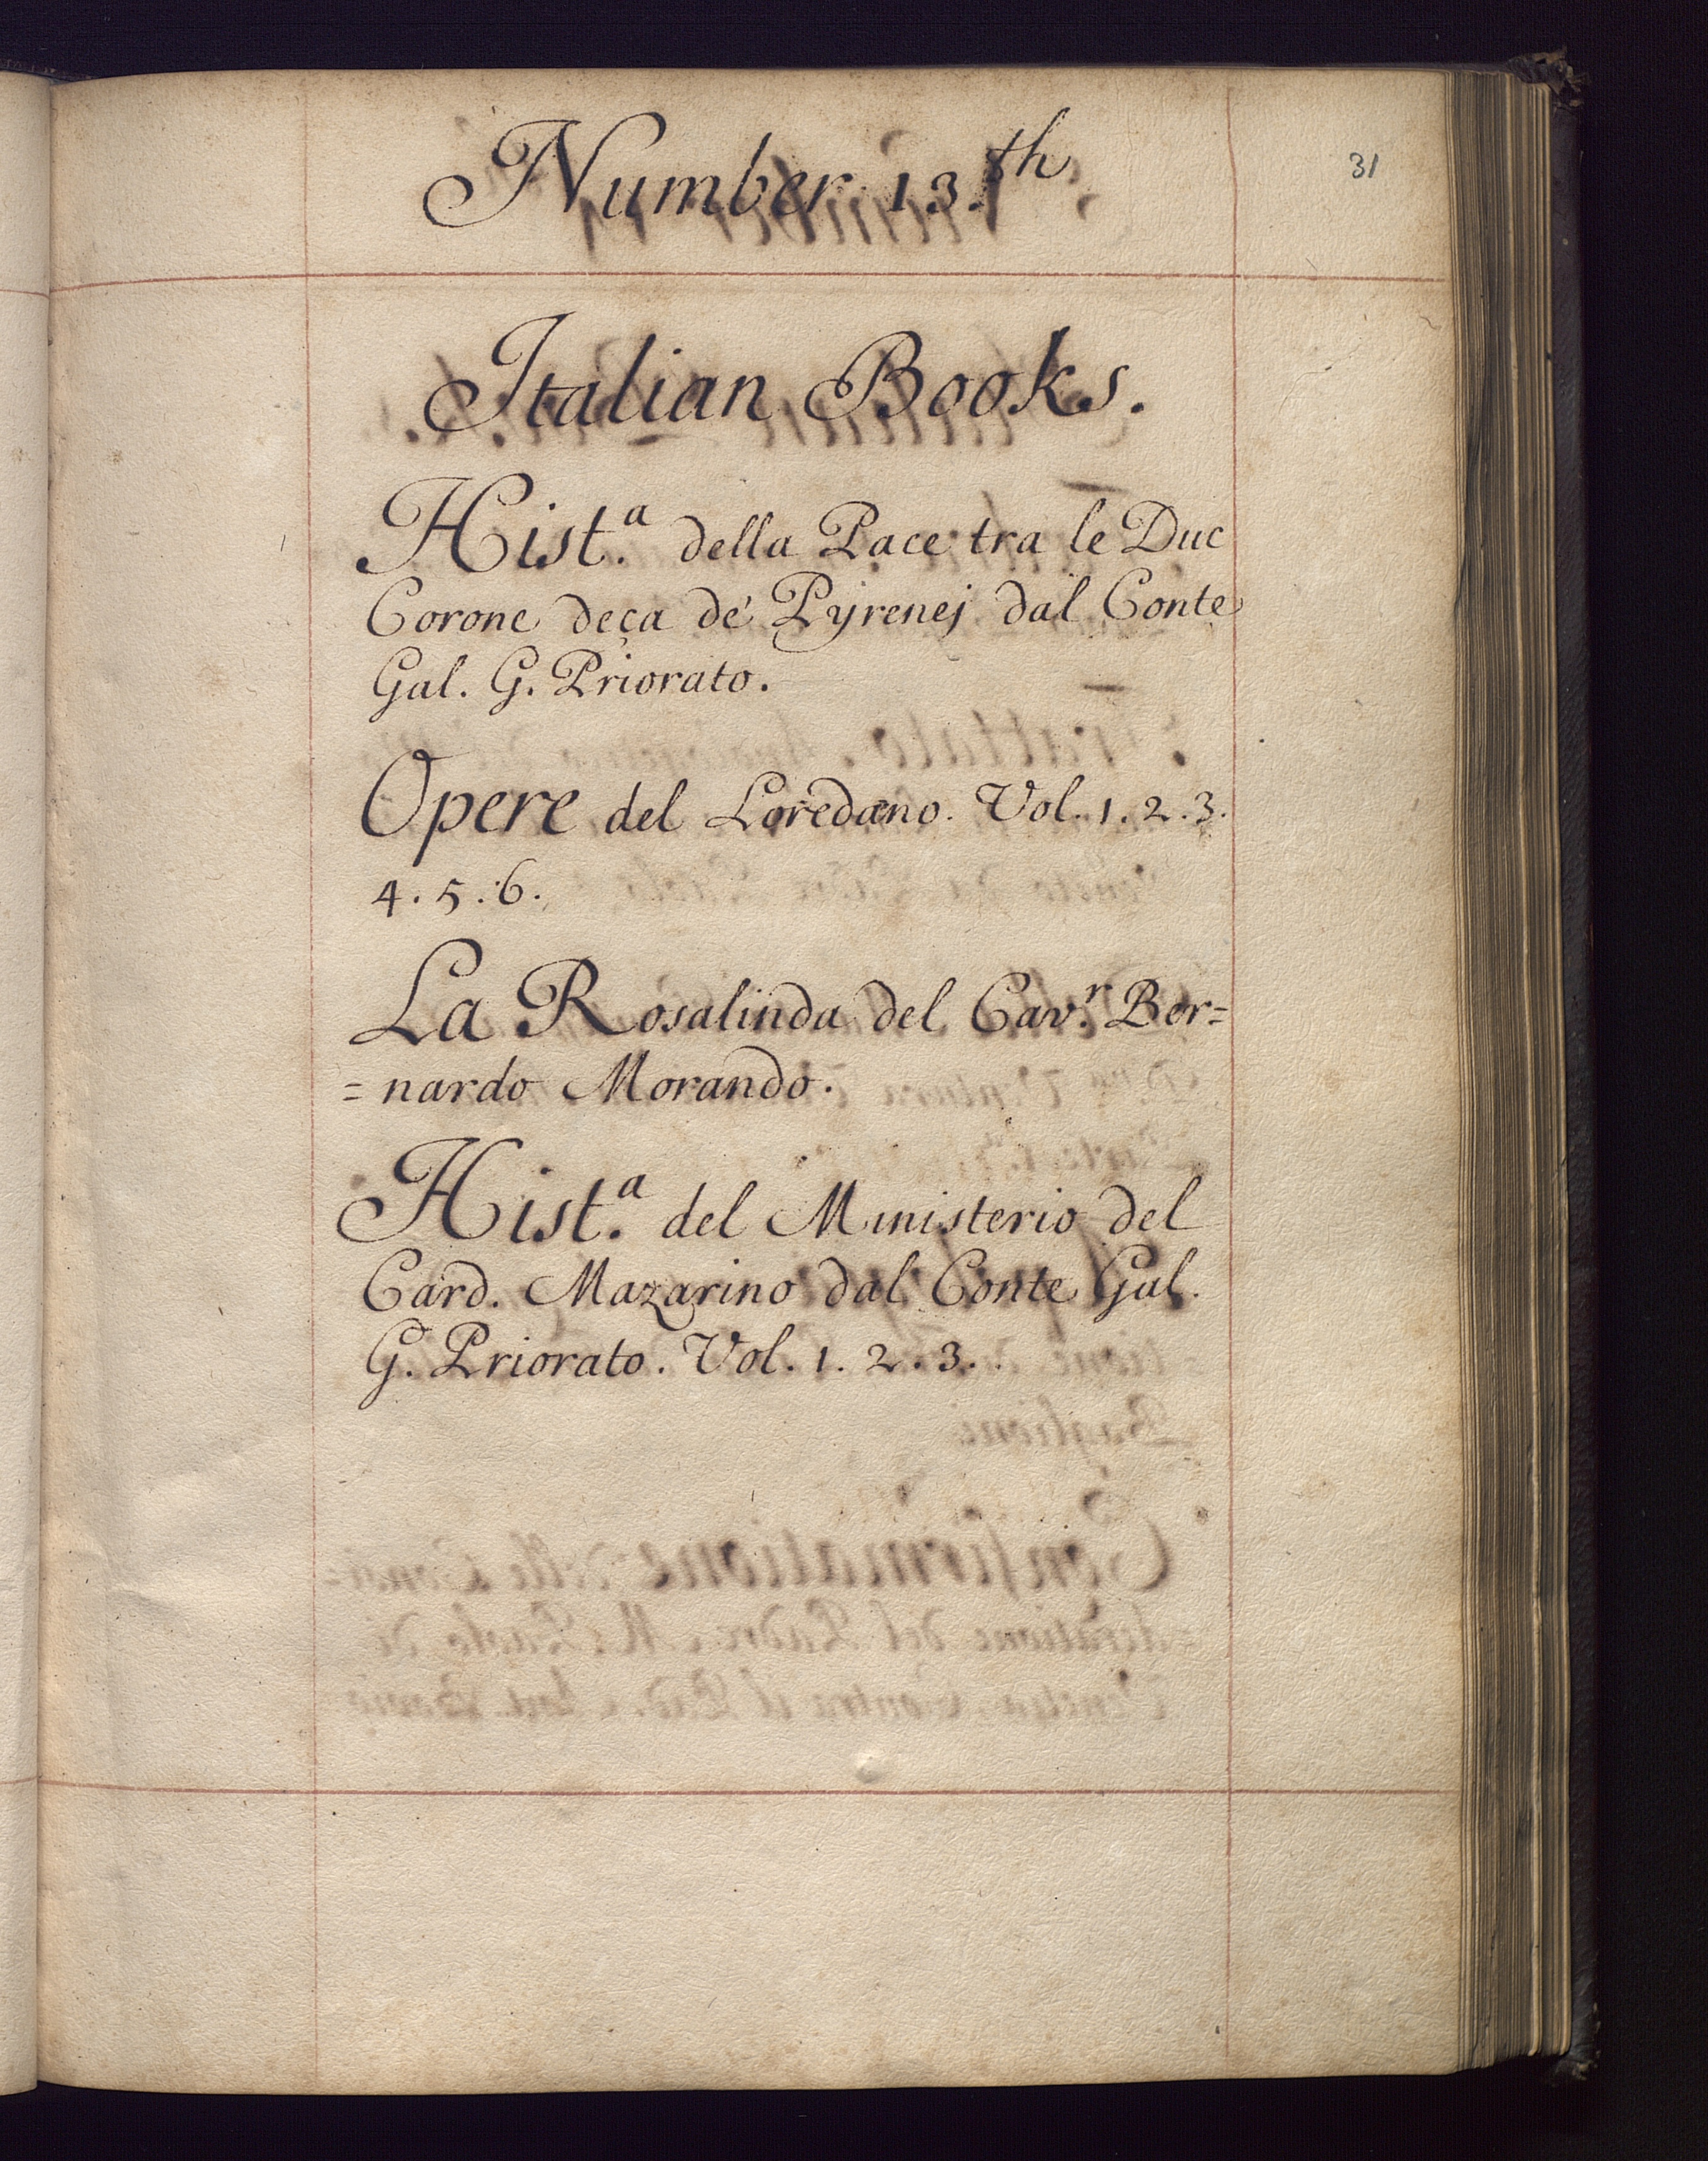 31
Number 13.th
Italian Books.
Hist.a della Pace tra le Duc
Corone deça de' Pyrenej dal Conte
Gal. G. Priorato.
Opere del Loredano. Vol. 1. 2. 3.
4. 5. 6.
La Rosalinda del Cav.r Ber=
=nardo Morando.
Hist.a del Ministerio del
Card. Mazarino dal Conte Gal.
G. Priorato. Vol. 1. 2. 3.